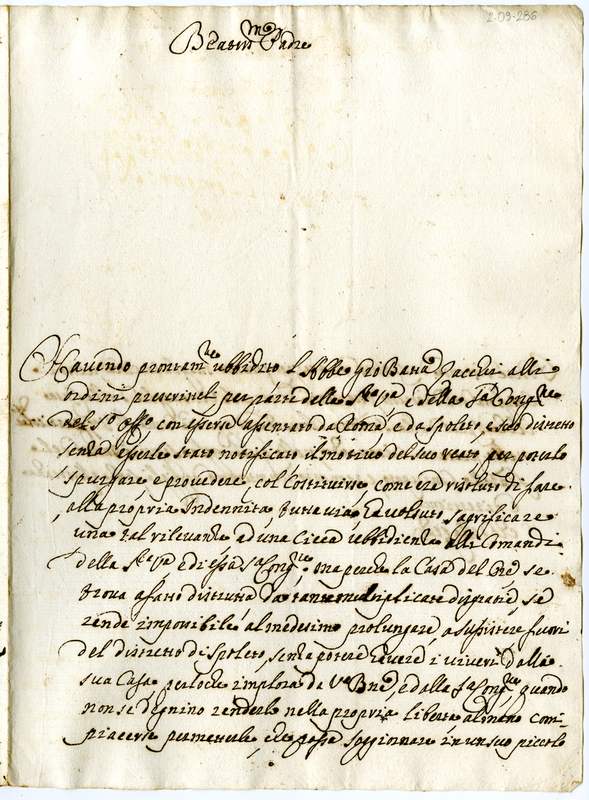 2-09-286
Beatis.mo Padre
Havendo prontam.te ubbidito l'Abbe Gio Batta Zacchi alli
ordini prescritteli per parte della S.ta V.a e della Sa Cong.ne
del S.o Off.o con essersi assentato da Roma, e da Spoleto, e suo distretto
senza esserle stato notificato il motivo del suo reato per poterlo
spurgare e provedere, col Costituirsi, come era risoluto di fare
alla propria Indennita, tuttavia, ha voluto sagrificare
una tal rilevanza ad una Cieca ubbidienza alli Comandi
della S.ta V.a e di essa Sa Cong.ne, ma perche la Casa del Ore se
trova afatto distrutta da tante multiplicate disgratie, se
rende imposibile al medesimo prolungare, a susistere fuori
del distretto di Spoleto, senza potere havere i viveri dalla
sua Casa, perloche implora da V.a Bne, e dalla Sa Cong.ne quando
non se degnino renderle nella propria liberta, almeno com-
piacersi permetterle che possa soggiornare in un suo piccolo